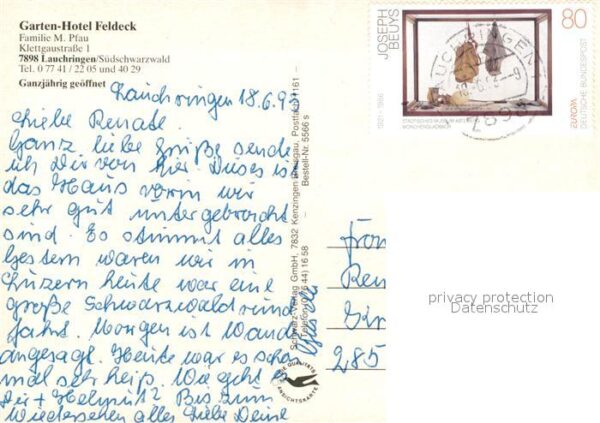 Garten-Hotel Feldeck
Familie M. Pfau
Klettgaustraße 1
7898 Lauchringen/Südschwarzwald
Tel. 0 77 41 / 22 05 und 40 29
Ganzjährig geöffnet
Lauchringen 18.6.93
Liebe Renate.
Ganz liebe Grüße sende
ich Dir von hier. Dieses ist
das Haus worin wir
sehr gut untergebracht
sind. Es stimmt alles
Gestern waren wir in
Luzern heute war eine
große Schwarzwaldrund
fahrt. Morgen ist Wand
angesagt. Heute war es schon
mal sehr heiß. Wie geht es
Dir + Helmut? Bis zum
Wiedersehen alles Liebe Deine
Schwarz-Verlag GmbH, 7832 Kenzingen/Breisgau, Postfach 1161 –
Telefon (0 76 44) 16 58 – Bestell-Nr. 5566 s
DIE QUALITÄTS
ANSICHTSKARTE
JOSEPH
BEUYS
1921 - 1986
80
DEUTSCHE BUNDESPOST
EUROPA
STÄDTISCHES MUSEUM ABTEIBERG
MÖNCHENGLADBACH
LAUCHRINGEN 1
Ren
285
privacy protection
Datenschutz